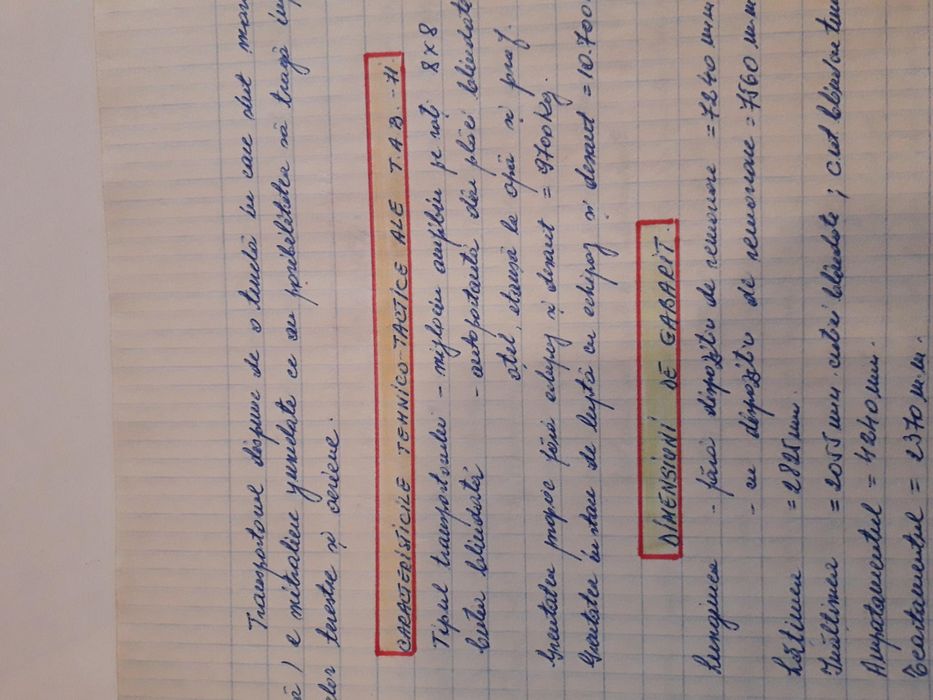 Transportorul dispune de o turelă în care sunt mon
ă) 2 mitraliere jumelate ce au posibilitatea să tragă îm
elor terestre și aeriene.
CARACTERISTICILE TEHNICO-TACTICE ALE T.A.B. -71
Tipul transportorului - mijlociu amfibiu pe roți 8x8
Cutia blindată - autoportantă din plăci blindate
oțel, etanșă la apă și praf.
Greutatea proprie fără echipaj și desant = 9700 kg
Greutatea în stare de luptă cu echipaj și desant = 10.700
DIMENSIUNI DE GABARIT.
Lungimea - fără dispozitiv de remorcare = 7240 mm
- cu dispozitiv de remorcare = 7560 m.m
Lățimea = 2825 mm.
Înălțimea = 2055 mm cutiei blindate ; cut blindate tu
Ampatamentul = 4240 mm.
Ecartamentul = 2370 m.m.